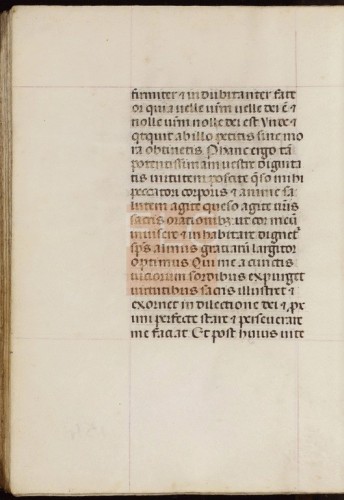 firmiter & indubitanter fate
or quia velle vr̃m velle dei ē &
nolle vr̃m nolle dei est Vnde &
q̃cquit ab illo petitis sine mo
ra obtinetis P hanc ergo tā
potentissimam vestre dignita
tis virtutem poscite q̃so mihi
peccatori corporis & anime sa
lutem agite queso agite vr̃is
sacris orationibus ut cor meū
inuisere & inhabitare dignet̃
sp̃s almus gratiarū largitor
optimus Qui me a cunctis
viciorum sordibus expurget
virtutibus sacris illustret &
exornet in dilectione dei &
mi perfecte stare & perseuerare
me faciat Et post huius vite